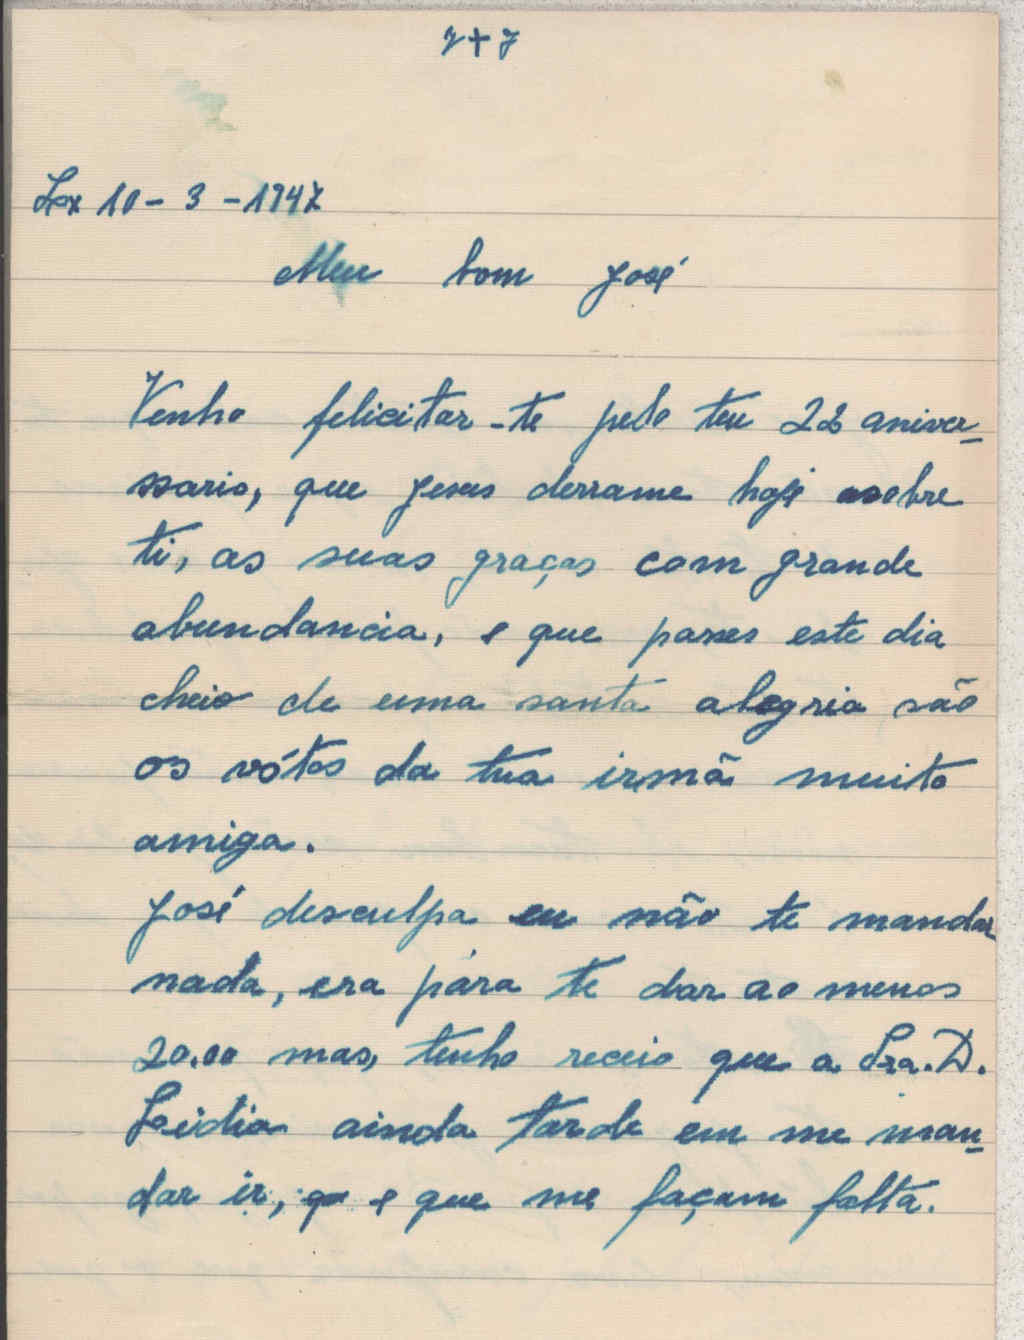 J+J
Lx 10-3-1947
Meu bom José
Venho felicitar-te pelo teu 22 aniver-
ssario, que Jesus derrame hoje sobre
ti, as suas graças com grande
abundancia, e que passes este dia
cheio de uma santa alegria, são
os vótos da tua irmã muito
amiga.
José desculpa eu não te mandar
nada, era pára te dar ao menos
20.00 mas, tenho receio que a Sra. D.
Lidia ainda tarde em me man-
dar ir, e que me façam falta.